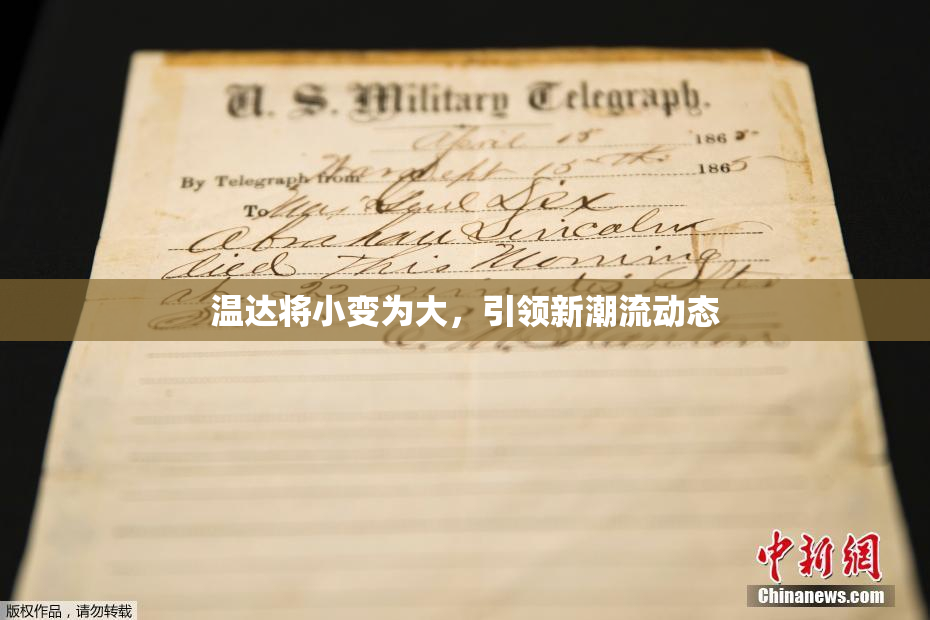 U. S. Military Telegraph.
April 15 1865
By Telegraph from War Dept 15th 1865
To Maj Genl Dix
Abraham Lincoln
died This Morning
at 22 minutes after
温达将小变为大，引领新潮流动态
E. M. Stanton
中新網
Chinanews.com
版权作品，请勿转载